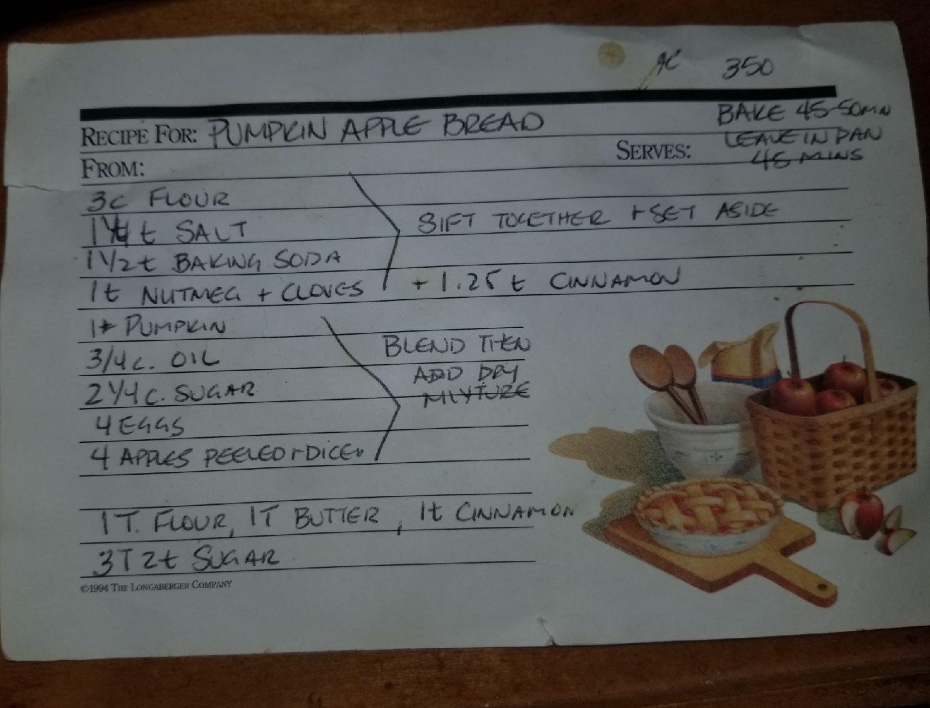 350
RECIPE FOR: PUMPKIN APPLE BREAD
BAKE 45-50MN
LEAVE IN PAN
45 MINS
FROM:
SERVES:
3C FLOUR
t SALT
SIFT TOGETHER + SET ASIDE
1 1/2 t BAKING SODA
1t NUTMEG + CLOVES
+ 1.25 t CINNAMON
PUMPKIN
3/4 C. OIL
2 1/4 C. SUGAR
4 EGGS
4 APPLES PEELED + DICED
BLEND THEN
ADD DRY
MIXTURE
1 T. FLOUR, 1T BUTTER, 1t CINNAMON
3T 2t SUGAR
©1994 THE LONGABERGER COMPANY